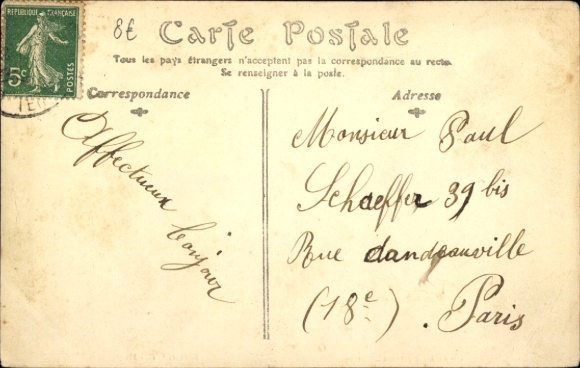 REPUBLIQUE FRANÇAISE
5c
POSTES
8€
Carte Postale
Tous les pays étrangers n'acceptent pas la correspondance au recto.
Se renseigner à la poste.
Correspondance
Affectueux
bonjour
Adresse
Monsieur Paul
Schaeffer 39 bis
Rue dandeauville
(18e)
Paris